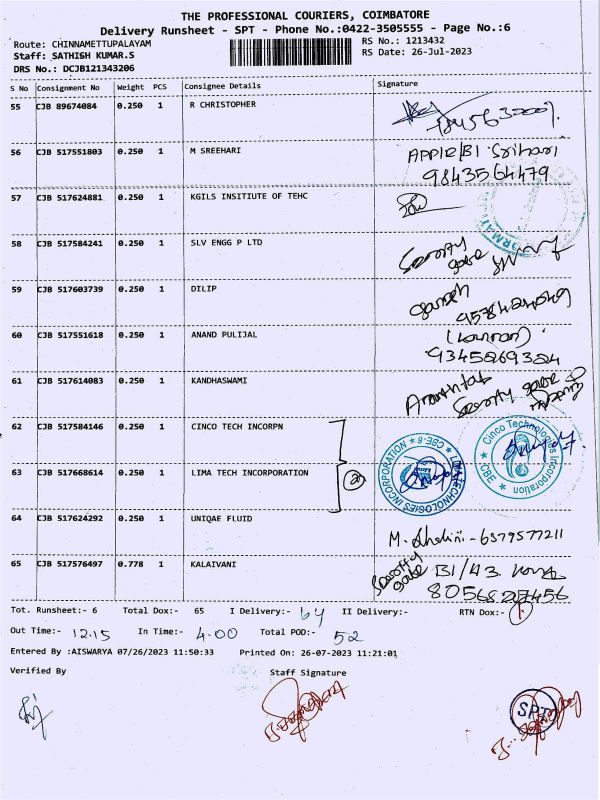 THE PROFESSIONAL COURIERS, COIMBATORE
Delivery Runsheet - SPT - Phone No.:0422-3505555 - Page No.:6
Route: CHINNAMETTUPALAYAM
RS No.: 1213432
Staff: SATHISH KUMAR.S
RS Date: 26-Jul-2023
DRS No.: DCJB121343206
S No Consignment No Weight PCS Consignee Details Signature
55 CJB 89674084 0.250 1 R CHRISTOPHER
56 CJB 517551803 0.250 1 M SREEHARI APPLE/B1 Srihari
9843564479
57 CJB 517624881 0.250 1 KGILS INSITIUTE OF TEHC
58 CJB 517584241 0.250 1 SLV ENGG P LTD Security gate
59 CJB 517603739 0.250 1 DILIP Ganesh
9578424049
60 CJB 517551618 0.250 1 ANAND PULIJAL (Kannan)
9345869384
61 CJB 517614083 0.250 1 KANDHASWAMI
Security gate
62 CJB 517584146 0.250 1 CINCO TECH INCORPN Cinco Technologies Incorporation CBE
63 CJB 517668614 0.250 1 LIMA TECH INCORPORATION LIMA TECHNOLOGIES INCORPORATION CBE-8
64 CJB 517624292 0.250 1 UNIQAE FLUID M. Shalini - 6379577211
65 CJB 517576497 0.778 1 KALAIVANI Security gate B1/43
Tot. Runsheet:- 6 Total Dox:- 65 I Delivery:- 64 II Delivery:- RTN Dox:- 1
Out Time:- 12.15 In Time:- 4.00 Total POD:- 52
Entered By :AISWARYA 07/26/2023 11:50:33 Printed On: 26-07-2023 11:21:01
Verified By Staff Signature
SPT